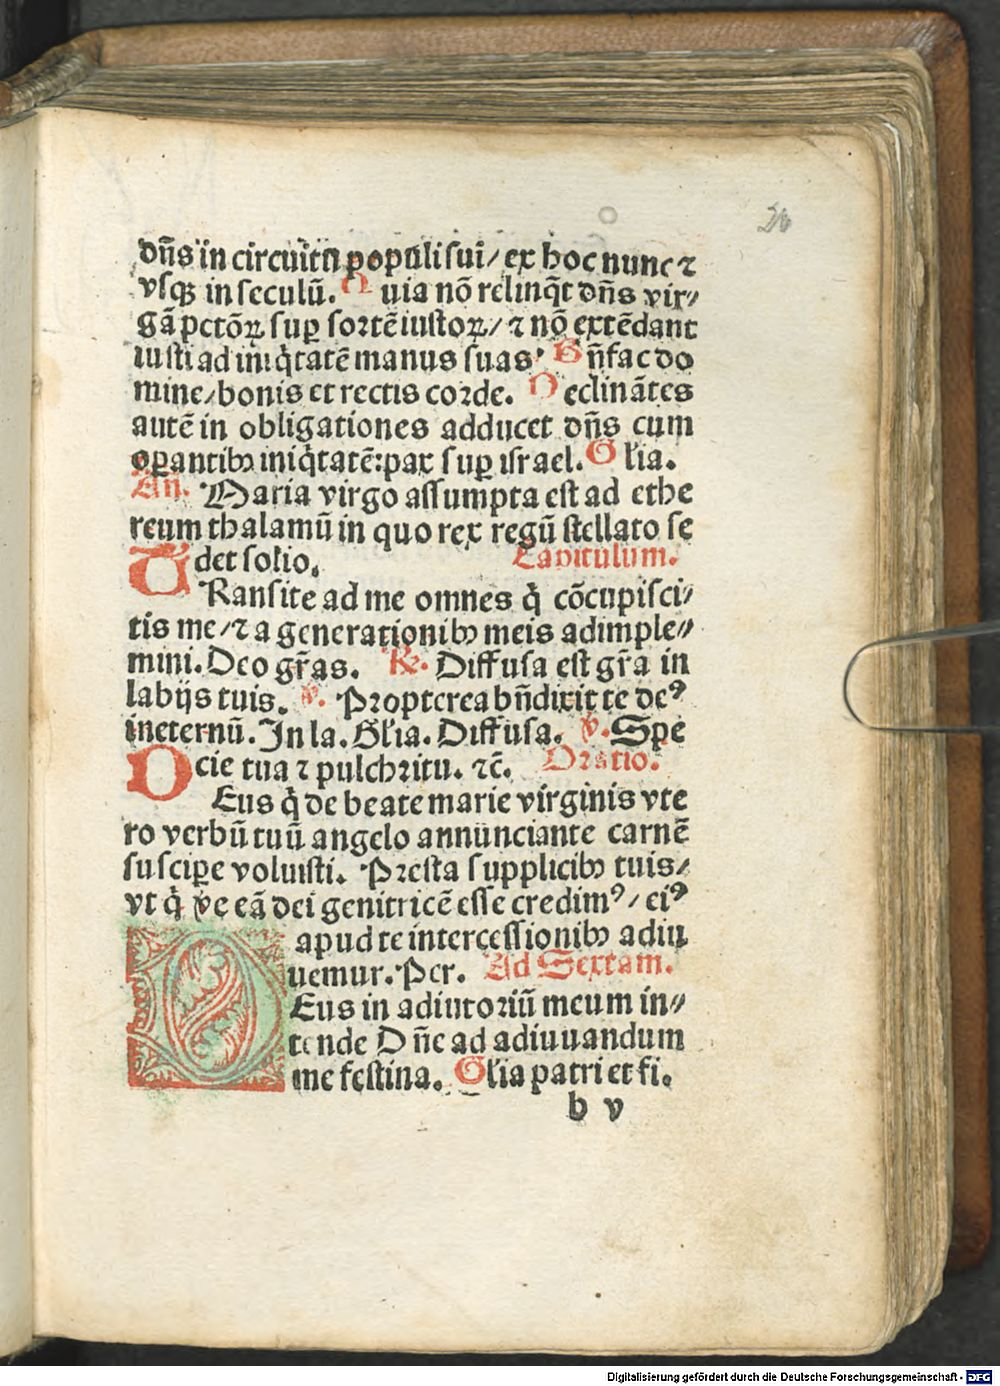 20
dñs in circuitu populi sui/ ex hoc nunc ⁊
vsqꝫ in seculū. Quia nō relinq̄t dñs vir//
gā pctōꝝ suꝑ sortē iustoꝝ/ ⁊ nō extēdant
iusti ad iniq̇tatē manus suas. Bñfac do
mine/ bonis et rectis corde. Declinātes
autē in obligationes adducet dñs cum
oꝑantibꝰ iniq̇tatē: pax suꝑ israel. Glīa.
Añ. Maria virgo assumpta est ad ethe
reum thalamū in quo rex regū stellato se
det solio. Capitulum.
TRansite ad me omnes q̇ cōcupisci/
tis me/ ⁊ a generationibꝰ meis adimple//
mini. Deo gr̄as. R̷. Diffusa est gr̄a in
labijs tuis. v̷. Propterea bñdixit te deꝰ
in eternū. In la. Glīa. Diffusa. v̷. Spe
cie tua ⁊ pulchritu. ⁊c̄. Oratio.
DEus q̇ de beate marie virginis vte
ro verbū tuū angelo annunciante carnē
susciꝑe voluisti. Presta supplicibꝰ tuis/
vt q̇ ṽe eā dei genitricē esse credimꝰ/ eiꝰ
apud te intercessionibꝰ adiu
uemur. Per. Ad Sextam.
DEus in adiutoriū meum in//
tende Dñe ad adiuuandum
me festina. Glīa patri et fi.
b v
Digitalisierung gefördert durch die Deutsche Forschungsgemeinschaft - DFG